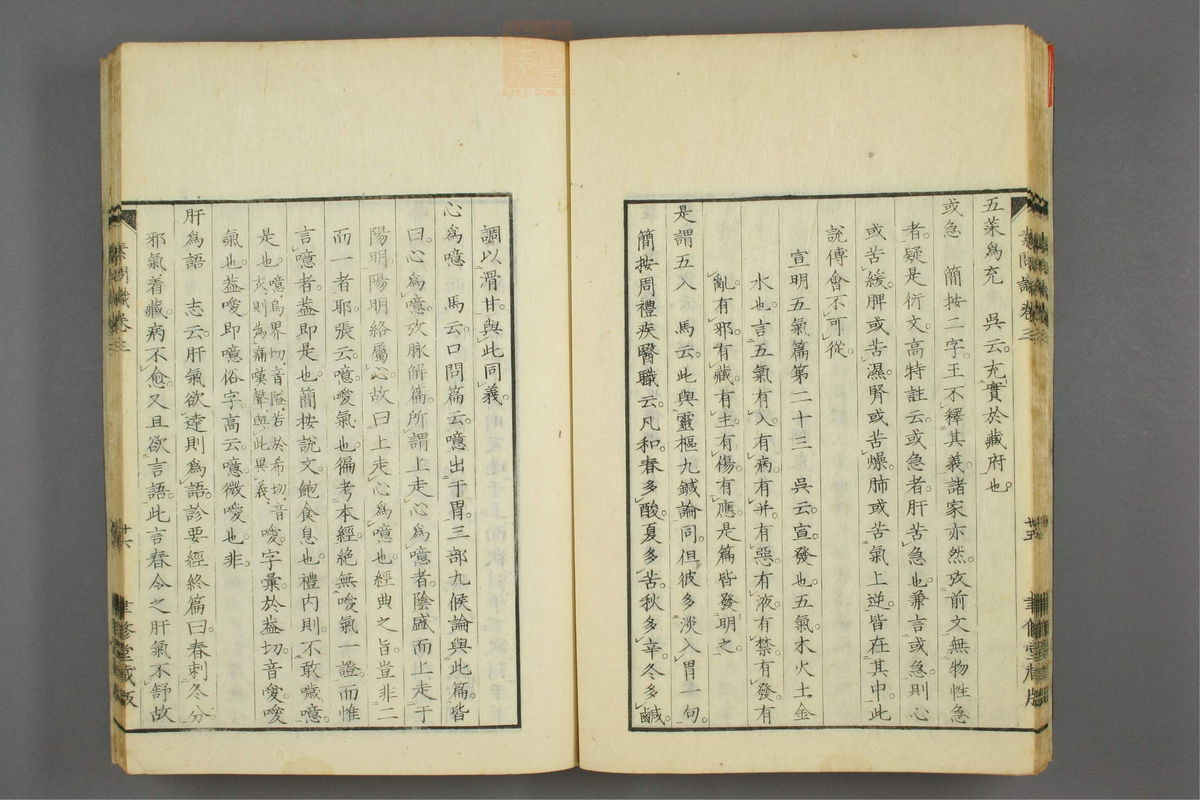 五菜為充　吳云充實於藏府也
或急　簡按二字王不釋其義諸家亦然攷前文無物性急
者疑是衍文高特註云或急者肝苦急也兼言或急則心
或苦緩脾或苦濕腎或苦燥肺或苦氣上逆皆在其中此
說傅會不可從
宣明五氣篇第二十三　吳云宣發也五氣木火土金
水也言五氣有入有病有并有惡有液有禁有發有
亂有邪有藏有主有傷有應是篇皆發明之
是謂五入　馬云此與靈樞九鍼論同但彼多淡入胃一句
簡按周禮疾醫職云凡和春多酸夏多苦秋多辛冬多鹹
調以滑甘與此同義
心為噫　馬云口問篇云噫出于胃三部九候論與此篇皆
曰心為噫攷脈解篇所謂上走心為噫者陰盛而上走于
陽明陽明絡屬心故曰上走心為噫也經典之旨豈非二
而一者耶張云噫噯氣也徧考本經絕無噯氣一證而惟
言噫者蓋即是也簡按說文飽食息也禮內則不敢噦噫
是也噫烏界切音隘若於希切音
衣則為痛嘆聲與此異義噯字彙於蓋切音愛噯
氣也蓋噯即噫俗字高云噫微噯也非
肝為語　志云肝氣欲達則為語診要經終篇曰春刺冬分
邪氣着藏病不愈又且欲言語此言春令之肝氣不舒故
素問識卷三
廿六
聿修堂藏版